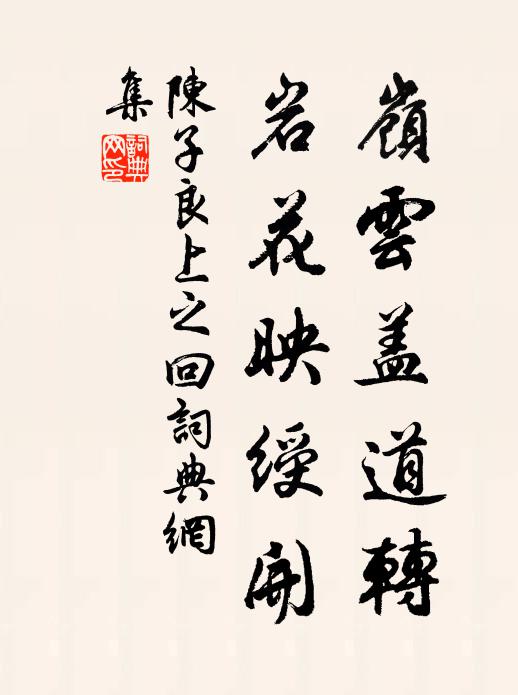 嶺雲盖道轉
岩花映綬開
陳子良上之回詞典網
集
詞典
网印